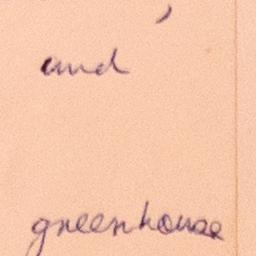 and
greenhouse